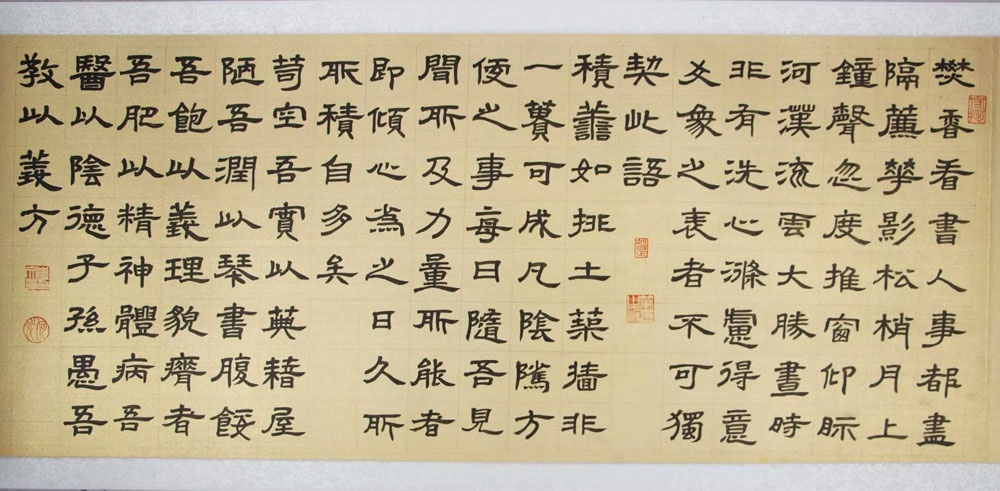 焚香看書人事都盡
隔簾華影松梢月上
鐘聲忽度推窗仰眎
河漢流雲大勝晝時
非有洗心滌慮得意
爻象之表者不可獨
契此語
積善如挑土築牆非
一簣可成凡陰騭方
便之事每日隨吾見
聞所及力量所能者
即傾心為之日久所
所積自多矣
笥空吾實以典籍屋
陋吾潤以琴書腹餒
吾飽以義理貌癠者
吾肥以精神體病吾
醫以陰德子孫愚吾
教以義方